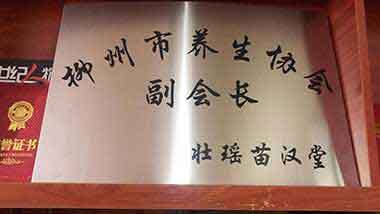 柳州市养生协会
副会长
壮瑶苗汉堂
世纪人物
誉证书